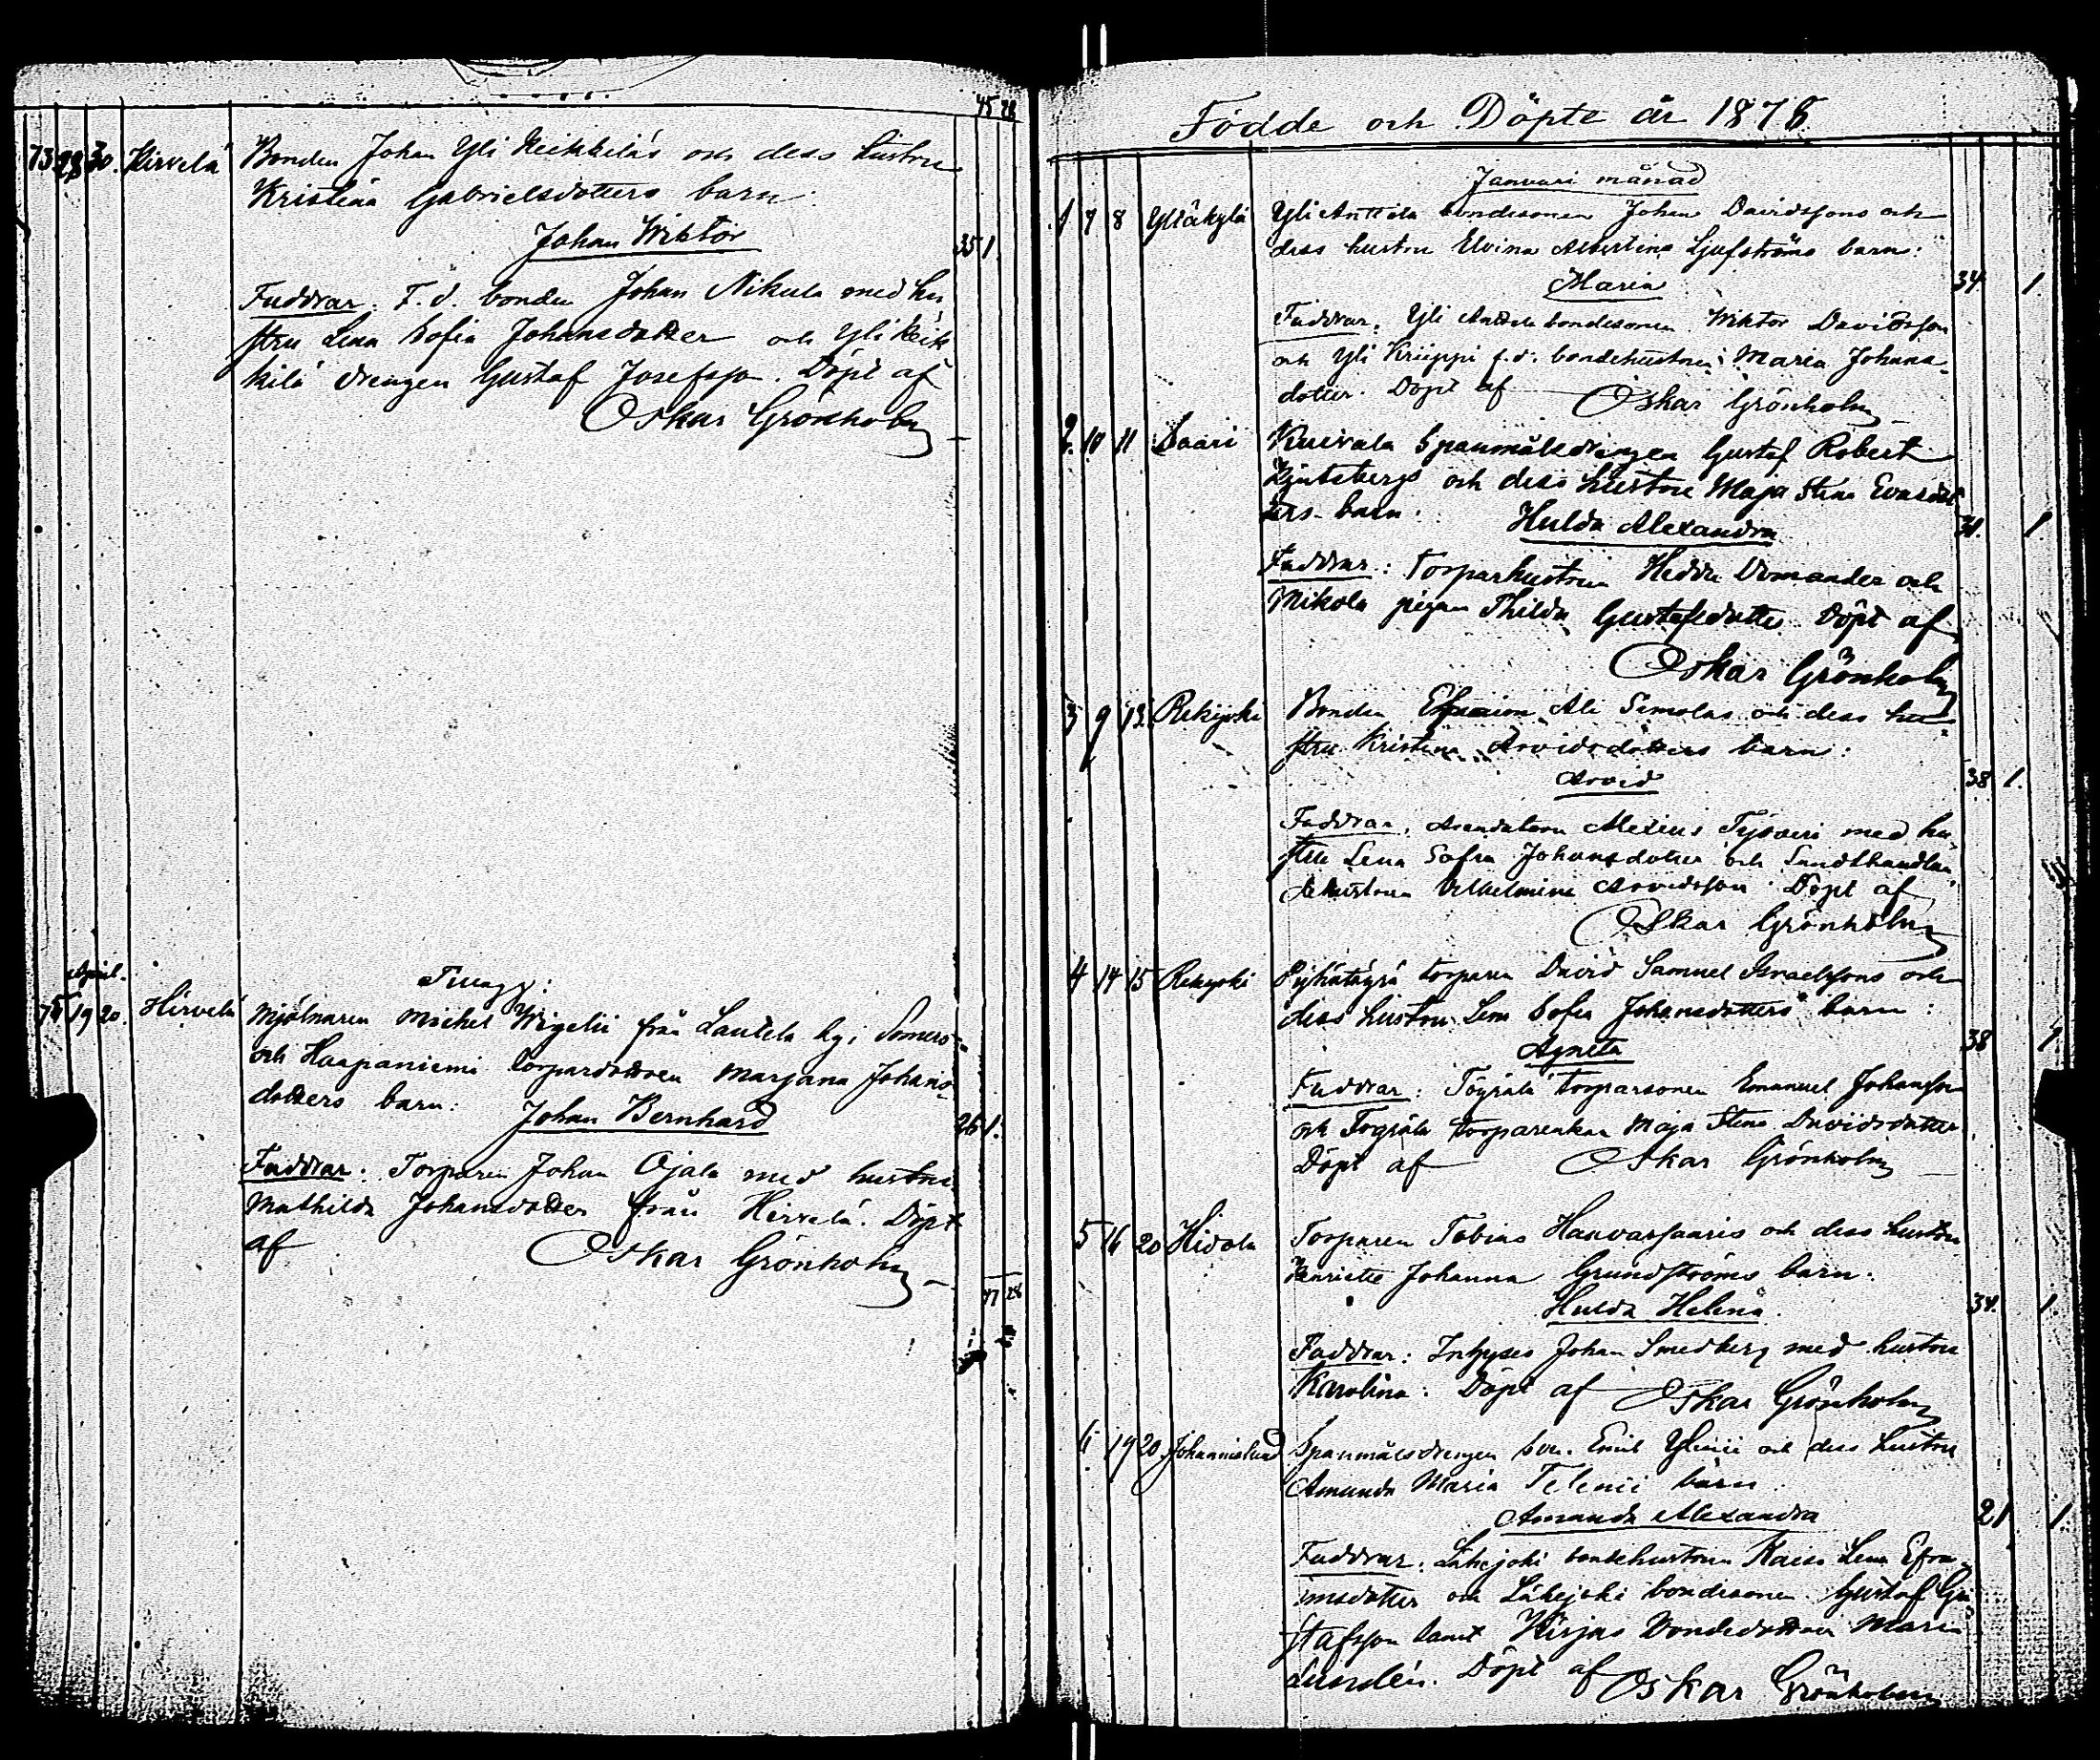 45 28
73 28 30. Hirvelä Bonden Johan Yli Keikkilä's och dess hustru
Kristina Gabrielsdotters barn:
Johan Wiktor
35 1
Faddrar: F.d. bonden Johan Nikula med hu
stru Lena Sofia Johansdotter och Yli Keik
kilä drengen Gustaf Josefsson. Döpt af
Oskar Grönholm
Tillägg:
April.
74 19 20. Hirvelä Mjölnaren Michel Wigelii från Lautela by i Somero
och Haapaniemi torpardottren Marjana Johans
dotters barn: Johan Bernhard
26 1.
Faddrar: Torparen Johan Ojala med hustru
Mathilda Johansdotter från Hirvelä. Döpt
af Oskar Grönholm
47 28
Födde och Döpte år 1878
Januari månad
1 7 8 Ylikylä Yli Anttila bondesonen Johan Davidssons och
dess hustru Elvina Albertina Ljufströms barn:
Maria
34. 1.
Faddrar: Yli Anttila bondesonen Wiktor Davidsson
och Yli Kriippi f.d. bondehustrun Maria Johans-
dotter. Döpt af Oskar Grönholm
2. 10 11 Saari Kuivala Spanmålsdrengen Gustaf Robert
och dess hustru Maja Stina Evasdot
ters barn: Hulda Alexandra
31. 1.
Faddrar: Torparhustrun Hedda Vomander och
Mikola pigan Thilda Gustafsdotter Döpt af
Oskar Grönholm
3 9 13. Rekijoki Bonden Efraim Ali Simolas och dess hu
stru Kristina Arvidsdotters barn:
Arvid
38 1.
Faddrar: Arendatorn Alexius Tysveri med hu
stru Lena Sofia Johansdotter och Landthandlar
hustrun Vilhelmina Arvidsson. Döpt af
Oskar Grönholm
4 14 15 Rekijoki torparen David Samuel Israelssons och
dess hustru Lena Sofia Johansdotters barn:
Agneta
38 1
Faddrar: torparsonen Emanuel Johansson
och torparenkan Maja Stina Davidsdotter
Döpt af Oskar Grönholm
5 16 20 Hidola Torparen Tobias Haavarsaaris och dess hustru
Henriette Johanna Grundströms barn:
Hulda Helena
34. 1.
Faddrar: Inhyses Johan Smedberg med hustru
Karolina. Döpt af Oskar Grönholm
6 19 20 Johannislund Spanmålsdrengen Emil Ylinii och dess hustru
Amanda Maria Telenii barn
Amanda Alexandra
21 1.
Faddrar: Lähejoki bondehustrun Kaisa Lena Efra
imsdotter och Lähejoki bondesonen Gustaf Gu
stafsson samt Kirjas bondedottren Maria
Lundén. Döpt af Oskar Grönholm